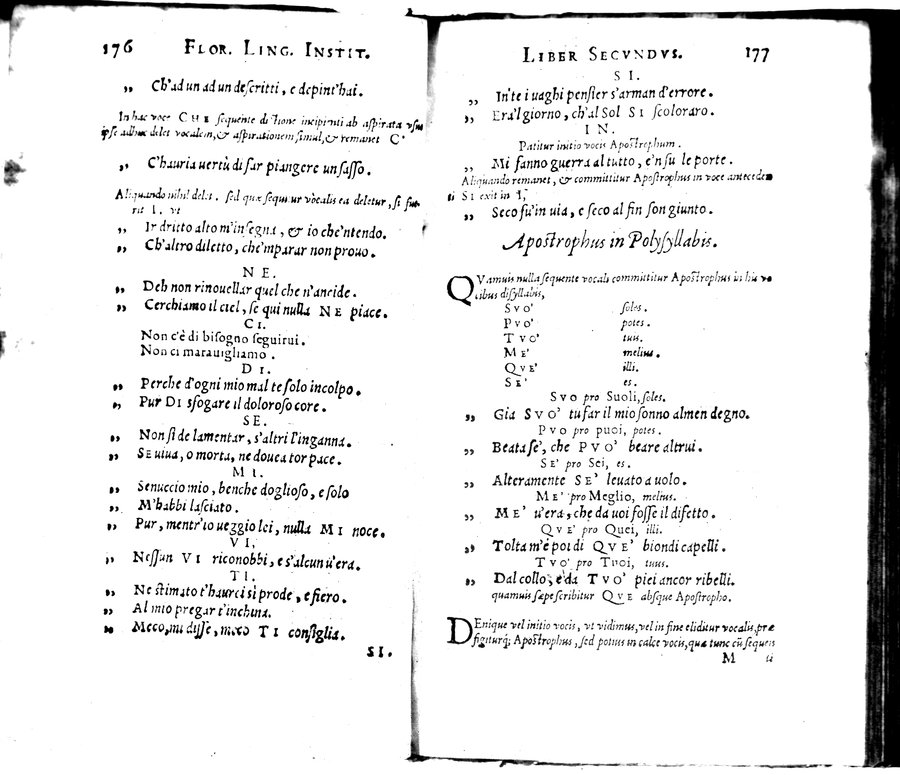 176 FLOR. LING. INSTIT.
„ Ch'ad un ad un descritti, e depint'hai.
In hac voce CHE sequente dictione incipienti ab aspirata
ipse adhuc delet vocalem, & aspirationem simul, & remanet C'
„ C'hauria uertù di far piangere un sasso.
Aliquando nihil delet. sed quæ sequitur vocalis ea deletur, si
rit I. vt
„ Ir dritto alto m'insegna, & io che'ntendo.
„ Ch'altro diletto, che'mparar non prouo.
NE.
„ Deh non rinouellar quel che n'ancide.
„ Cerchiamo il ciel, se qui nulla NE piace.
CI.
Non c'è di bisogno seguirui.
Non ci marauigliamo.
DI.
„ Perche d'ogni mio mal te solo incolpo.
„ Pur DI sfogare il doloroso core.
SE.
„ Non si de lamentar, s'altri l'inganna.
„ SE uiua, o morta, ne douea tor pace.
MI.
„ Senuccio mio, benche doglioso, e solo
„ M'habbi lasciato.
„ Pur, mentr'io ueggio lei, nulla MI noce.
VI,
„ Nessun VI riconobbi, e s'alcun u'era.
TI.
„ Ne stimato t'haurei si prode, e fiero.
„ Al mio pregar t'inchina.
„ Meco, mi disse, meco TI consiglia.
SI.
LIBER SECVNDVS. 177
SI.
„ In te i uaghi pensier s'arman d'errore.
„ Era'l giorno, ch'al Sol SI scoloraro.
IN.
Patitur initio vocis Apostrophum.
„ Mi fanno guerra al tutto, e'n su le porte.
Aliquando remanet, & committitur Apostrophus in voce anteceden
ti SI exit in I,
„ Seco fu'in uia, e seco al fin son giunto.
Apostrophus in Polysyllabis.
QVamuis nulla sequente vocali committitur Apostrophus in his vo
cibus disyllabis,
SVO' soles.
PVO' potes.
TVO' tuus.
ME' melius.
QVE' illi.
SE' es.
SVO pro Suoli, soles.
„ Gia SVO' tu far il mio sonno almen degno.
PVO pro puoi, potes.
„ Beata se', che PVO' beare altrui.
SE' pro Sei, es.
„ Alteramente SE' leuato a uolo.
ME' pro Meglio, melius.
„ ME' u'era, che da uoi fosse il difetto.
QVE' pro Quei, illi.
„ Tolta m'è poi di QVE' biondi capelli.
TVO' pro Tuoi, tuus.
„ Dal collo, e da TVO' piei ancor ribelli.
quamuis sæpe scribitur QVE absque Apostropho.
DEnique vel initio vocis, vt vidimus, vel in fine eliditur vocalis, præ
figiturq; Apostrophus, sed potius in calce vocis, quæ tunc cũ sequen
M ii